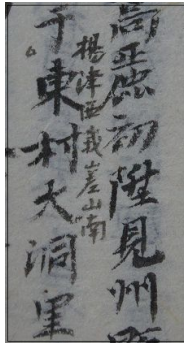 高麗初陞見州
楊津西峩嵳山南
于東村大洞里